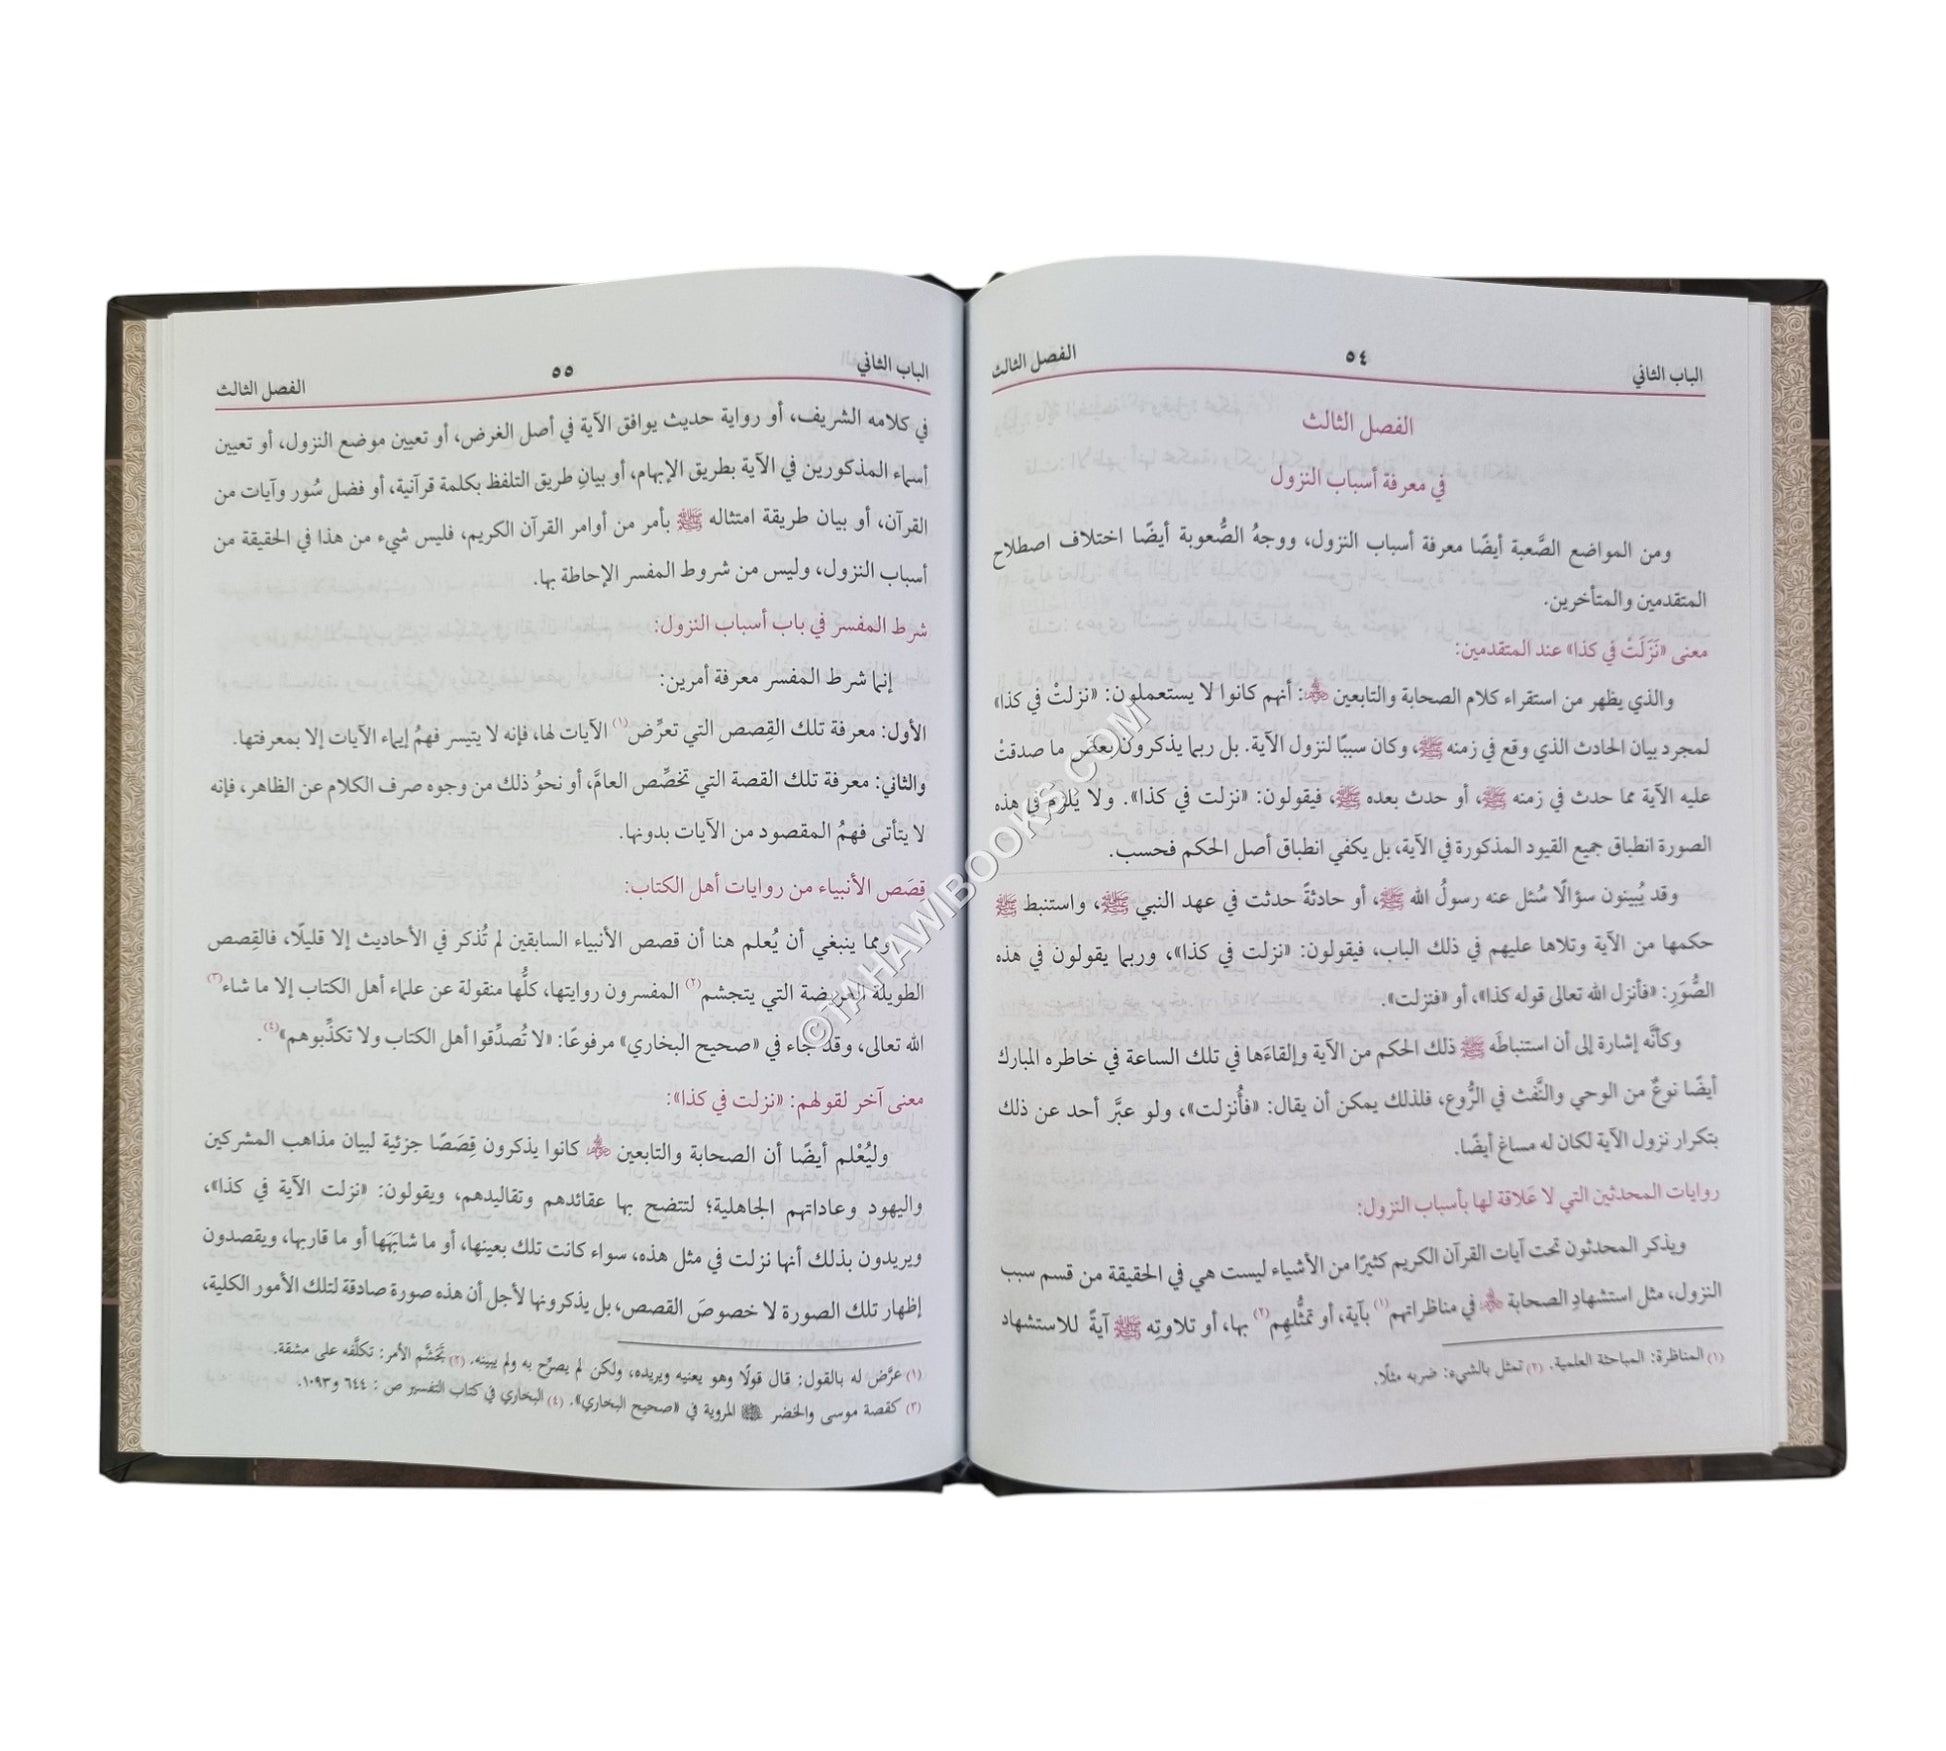 الباب الثاني ٥٤ الفصل الثالث
الفصل الثالث
في معرفة أسباب النزول
ومن المواضع الصَّعبة أيضًا معرفة أسباب النزول، ووجهُ الصُّعوبة أيضًا اختلاف اصطلاح
المتقدمين والمتأخرين.
معنى «نَزَلَتْ في كذا» عند المتقدمين:
والذي يظهر من استقراء كلام الصحابة والتابعين ﷺ: أنهم كانوا لا يستعملون: «نزلتْ في كذا»
لمجرد بيان الحادث الذي وقع في زمنه ﷺ، وكان سببًا لنزول الآية. بل ربما يذكرون بعض ما صدقتْ
عليه الآية مما حدث في زمنه ﷺ، أو حدث بعده ﷺ، فيقولون: «نزلت في كذا». ولا يلزم في هذه
الصورة انطباق جميع القيود المذكورة في الآية، بل يكفي انطباق أصل الحكم فحسب.
وقد يُبينون سؤالًا سُئل عنه رسولُ الله ﷺ، أو حادثةً حدثت في عهد النبي ﷺ، واستنبط ﷺ
حكمها من الآية وتلاها عليهم في ذلك الباب، فيقولون: «نزلت في كذا»، وربما يقولون في هذه
الصُّوَرِ: «فأنزل الله تعالى قوله كذا»، أو «فنزلت».
وكأنَّه إشارة إلى أن استنباطَه ﷺ ذلك الحكم من الآية وإلقاءَها في تلك الساعة في خاطره المبارك
أيضًا نوعٌ من الوحي والنَّفث في الرُّوع، فلذلك يمكن أن يقال: «فأُنزلت»، ولو عبَّر أحد عن ذلك
بتكرار نزول الآية لكان له مساغ أيضًا.
روايات المحدثين التي لا عَلاقة لها بأسباب النزول:
ويذكر المحدثون تحت آيات القرآن الكريم كثيرًا من الأشياء ليست هي في الحقيقة من قسم سبب
النزول، مثل استشهادِ الصحابة في مناظراتهم(١) بآية، أو تمثُّلِهم(٢) بها، أو تلاوتِه ﷺ آيةً للاستشهاد
(١) المناظرة: المباحثة العلمية. (٢) تمثل بالشيء: ضربه مثلًا.
الباب الثاني ٥٥ الفصل الثالث
في كلامه الشريف، أو رواية حديث يوافق الآية في أصل الغرض، أو تعيين موضع النزول، أو تعيين
أسماء المذكورين في الآية بطريق الإبهام، أو بيانِ طريق التلفظ بكلمة قرآنية، أو فضل سُور وآيات من
القرآن، أو بيان طريقة امتثاله ﷺ بأمر من أوامر القرآن الكريم، فليس شيء من هذا في الحقيقة من
أسباب النزول، وليس من شروط المفسر الإحاطة بها.
شرط المفسر في باب أسباب النزول:
إنما شرط المفسر معرفة أمرين:
الأول: معرفة تلك القِصص التي تعرِّض(١) الآيات لها، فإنه لا يتيسر فهمُ إيماء الآيات إلا بمعرفتها.
والثاني: معرفة تلك القصة التي تخصِّص العامَّ، أو نحوُ ذلك من وجوه صرف الكلام عن الظاهر، فإنه
لا يتأتى فهمُ المقصود من الآيات بدونها.
قِصَص الأنبياء من روايات أهل الكتاب:
ومما ينبغي أن يُعلم هنا أن قصص الأنبياء السابقين لم تُذكر في الأحاديث إلا قليلًا، فالقِصص
الطويلة العريضة التي يتجشم(٢) المفسرون روايتها، كلُّها منقولة عن علماء أهل الكتاب إلا ما شاء(٣)
الله تعالى، وقد جاء في «صحيح البخاري» مرفوعًا: «لا تُصدِّقوا أهل الكتاب ولا تكذِّبوهم»(٤).
معنى آخر لقولهم: «نزلت في كذا»:
وليُعْلم أيضًا أن الصحابة والتابعين كانوا يذكرون قِصَصًا جزئية لبيان مذاهب المشركين
واليهود وعاداتهم الجاهلية؛ لتتضح بها عقائدهم وتقاليدهم، ويقولون: «نزلت الآية في كذا»،
ويريدون بذلك أنها نزلت في مثل هذه، سواء كانت تلك بعينها، أو ما شابَهَها أو ما قاربها، ويقصدون
إظهار تلك الصورة لا خصوصَ القصص، بل يذكرونها لأجل أن هذه صورة صادقة لتلك الأمور الكلية،
(١) عرَّض له بالقول: قال قولًا وهو يعنيه ويريده، ولكن لم يصرِّح به ولم يبينه. (٢) تَجَشَّم الأمر: تكلَّفه على مشقة.
(٣) كقصة موسى والخضر المروية في «صحيح البخاري». (٤) البخاري في كتاب التفسير ص: ٦٤٤ و١٠٩٣.
©TAHAWIBOOKS.COM